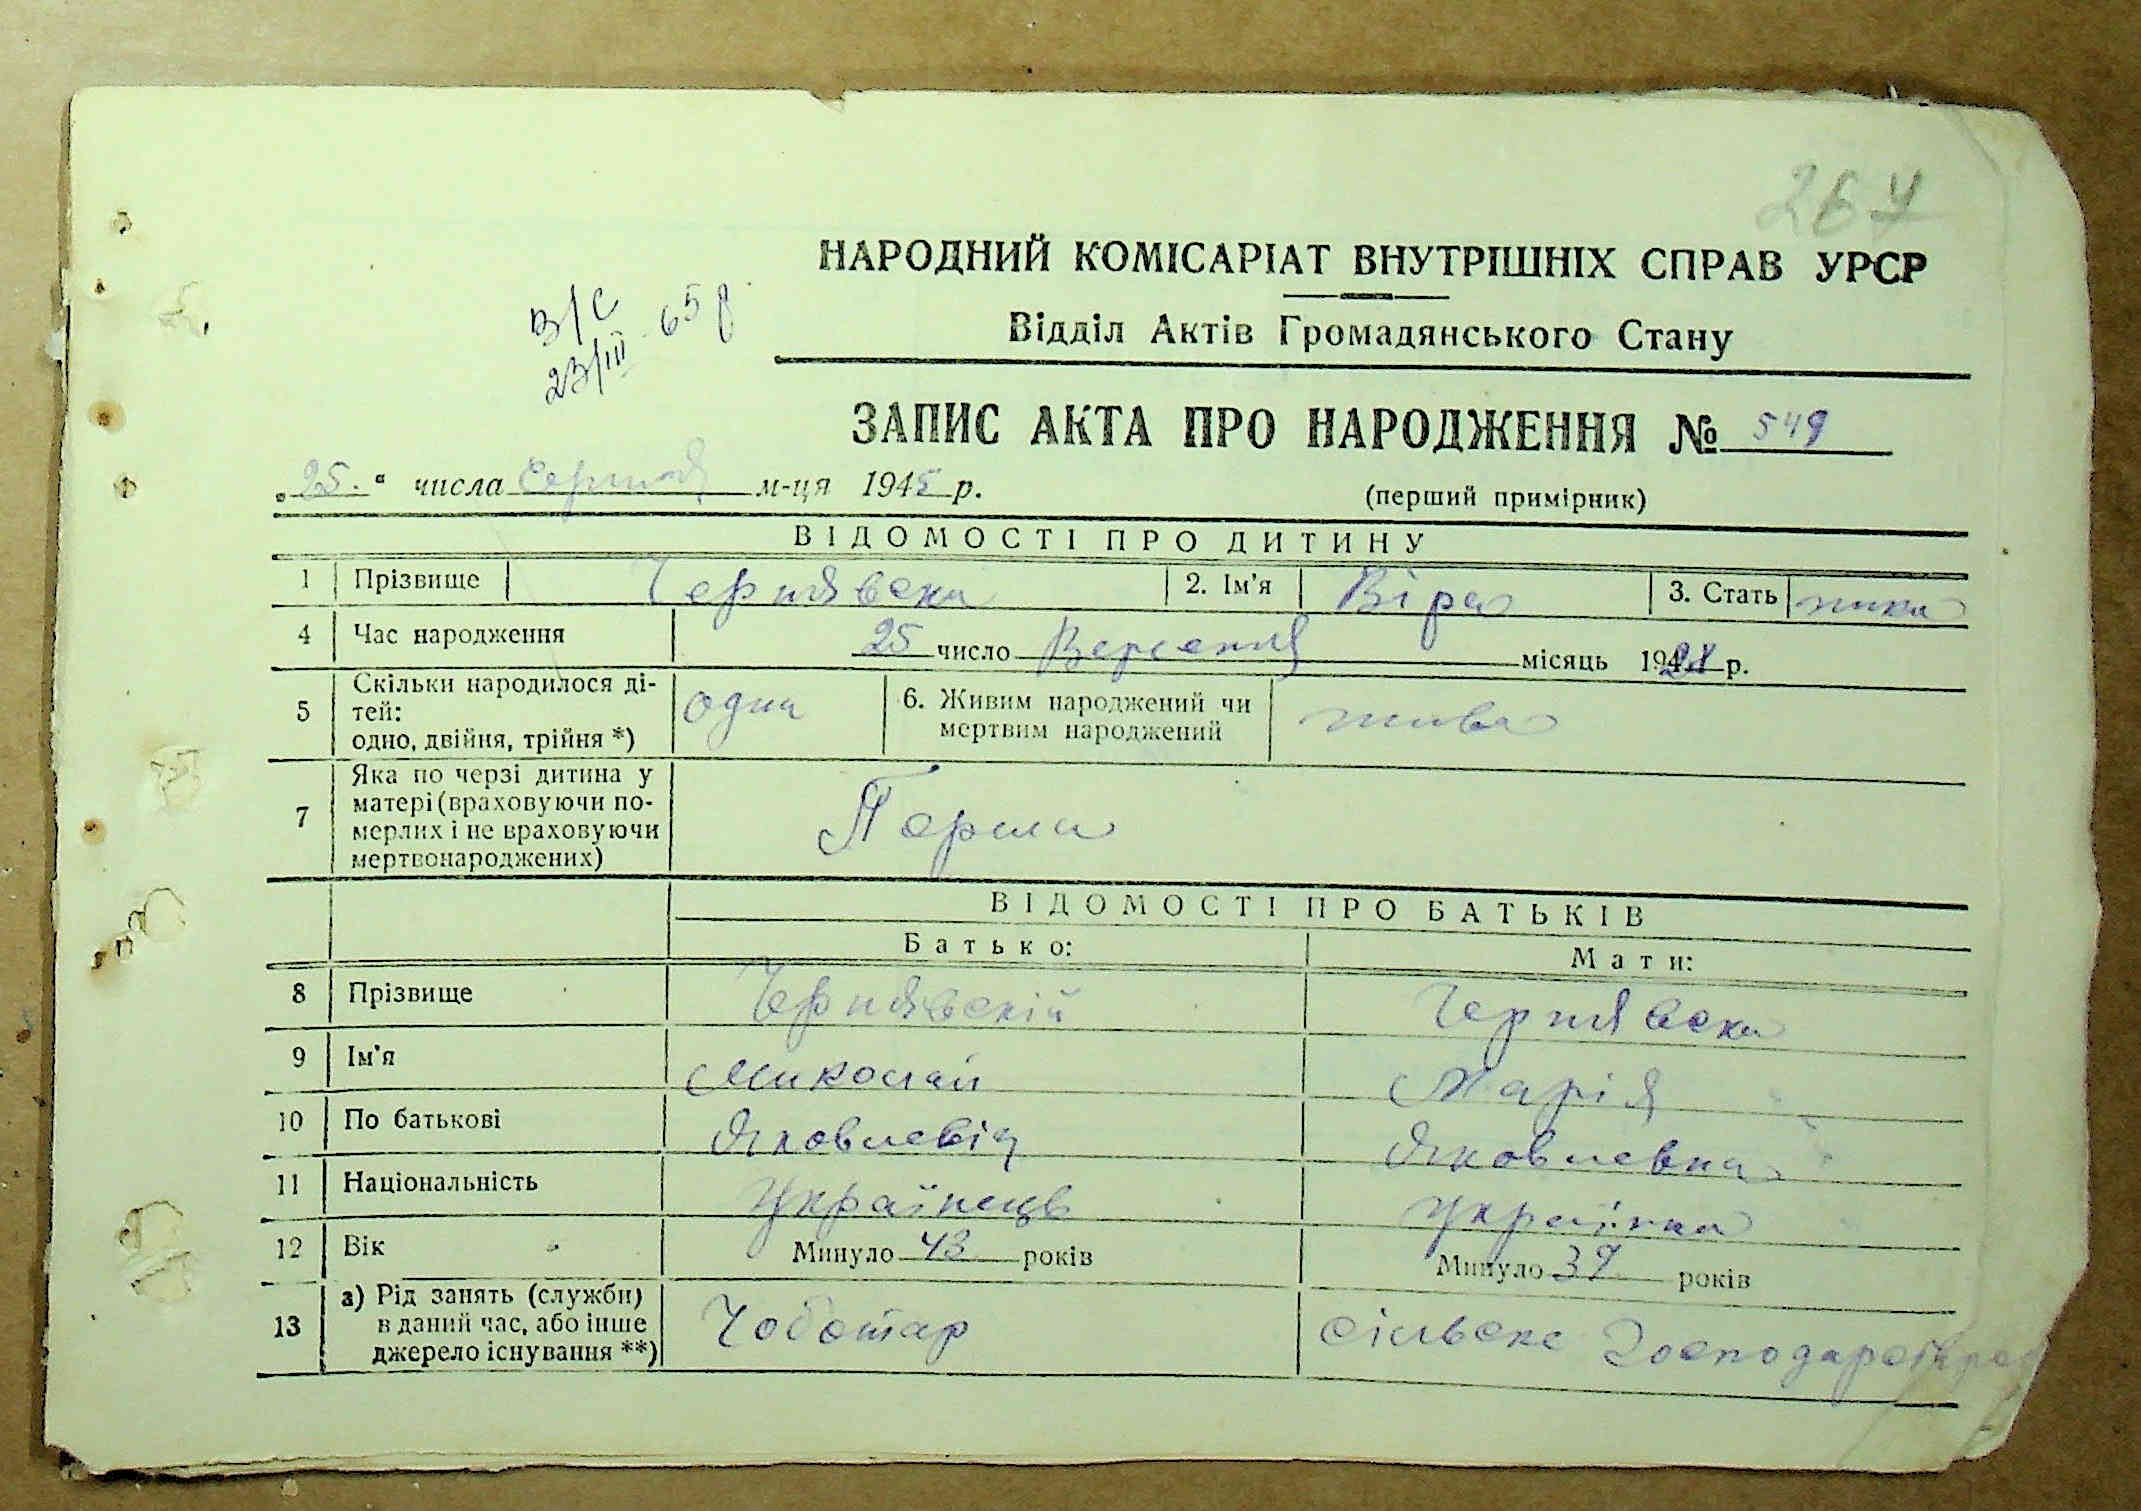 267
НАРОДНИЙ КОМІСАРІАТ ВНУТРІШНІХ СПРАВ УРСР
В/С
23/III 65р
Відділ Актів Громадянського Стану
ЗАПИС АКТА ПРО НАРОДЖЕННЯ № 549
„25." числа Серпня м-ця 1945 р.
(перший примірник)
ВІДОМОСТІ ПРО ДИТИНУ
1 Прізвище Чернявска 2. Ім'я Віра 3. Стать жика
4 Час народження 25 число Вересння місяць р.
5 Скільки народилося ді-
тей:
одно, двійня, трійня *) одна 6. Живим народжений чи
мертвим народжений жива
7 Яка по черзі дитина у
матері (враховуючи по-
мерлих і не враховуючи
мертвонароджених) Перша
ВІДОМОСТІ ПРО БАТЬКІВ
Батько: Мати:
8 Прізвище Чернявскій Чернявска
9 Ім'я Миколай Марія
10 По батькові Яковлевіч Яковлевна
11 Національність Українець Українка
12 Вік Минуло 43 років Минуло 39 років
13 а) Рід занять (служби)
в даний час, або інше
джерело існування **) Чоботар сільске